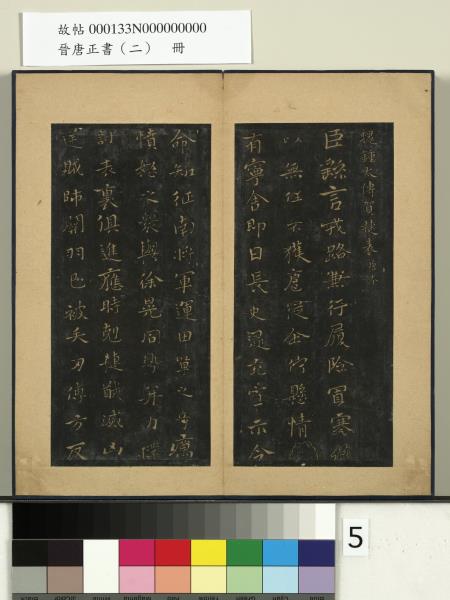 故帖 000133N000000000
晉唐正書（二） 冊
魏鍾太傅賀捷表
臣繇言戎路兼行履險冒寒臣
以無任不獲扈從企佇懸情無
有寧舍即日長史逯充宣示令
命知征南將軍運田單之奇厲
憤怒之眾與徐晃同勢并力撲
討表裏俱進應時剋捷馘滅凶
逆賊帥關羽已被矢刃傅方反
5
Blue Cyan Green Yellow Red Magenta White 3/Color Black